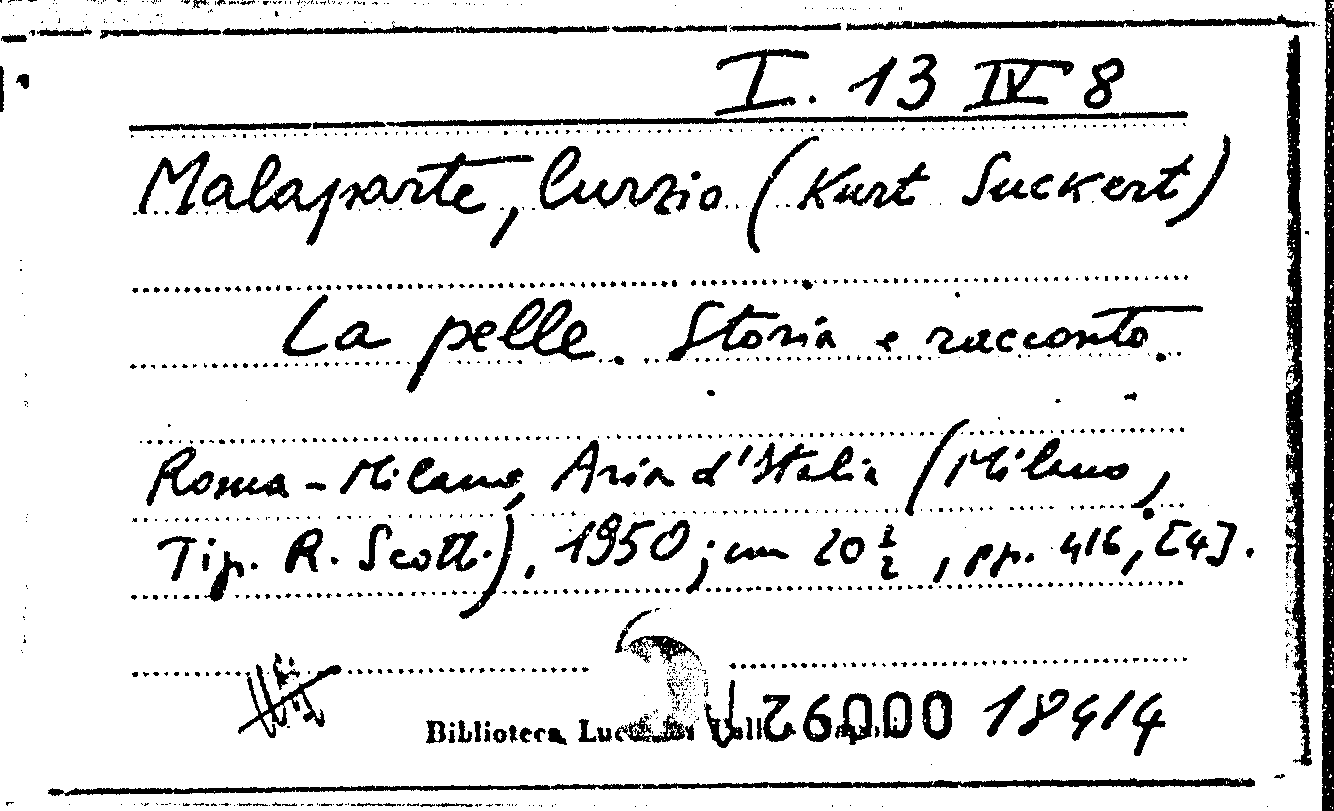 I. 13 IV 8
Malaparte, Curzio (Kurt Suckert)
La pelle. Storia e racconto.
Roma - Milano, Aria d'Italia (Milano,
Tip. R. Scotti), 1950; cm 20 ½, pp. 416, [4].
Biblioteca 18414